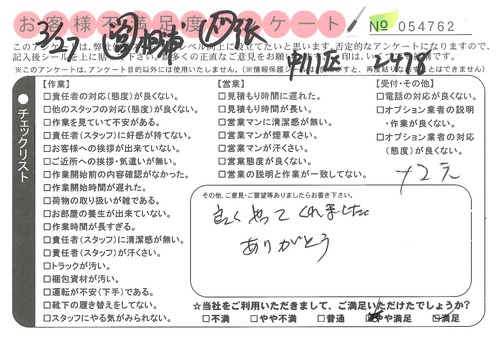 お客様不満足度アンケート
№ 054762
3/27
中川区
2478
記入後シールを上に貼
※このアンケートは、アンケート目的以外には使用いたしません。
チェックリスト
【作業】
□責任者の対応(態度)が良くない。
□他のスタッフの対応(態度)が良くない。
□作業を見ていて不安がある。
□責任者(スタッフ)に好感が持てない。
□お客様への挨拶が出来ていない。
□ご近所への挨拶・気遣いが無い。
□作業開始前の内容確認がなかった。
□作業開始時間が遅れた。
□荷物の取り扱いが雑である。
□お部屋の養生が出来ていない。
□作業時間が長すぎる。
□責任者(スタッフ)に清潔感が無い。
□責任者(スタッフ)が汗くさい。
□トラックが汚い。
□梱包資材が汚い。
□運転が不安(下手)である。
□靴下の履き替えをしてない。
□スタッフにやる気がみられない。
【営業】
□見積もり時間に遅れた。
□見積もり時間が長い。
□営業マンに清潔感が無い。
□営業マンが煙草くさい。
□営業マンが汗くさい。
□営業態度が良くない。
□営業の説明と作業が一致してない。
【受付・その他】
□電話の対応が良くない。
□オプション業者の説明
・作業が良くない。
□オプション業者の対応
(態度)が良くない。
その他、ご意見・ご要望等ありましたらお書き下さい。
良くやってくれました。
ありがとう
☆当社をご利用いただきまして、ご満足いただけたでしょうか?
□不満 □やや不満 □普通 □やや満足 □満足